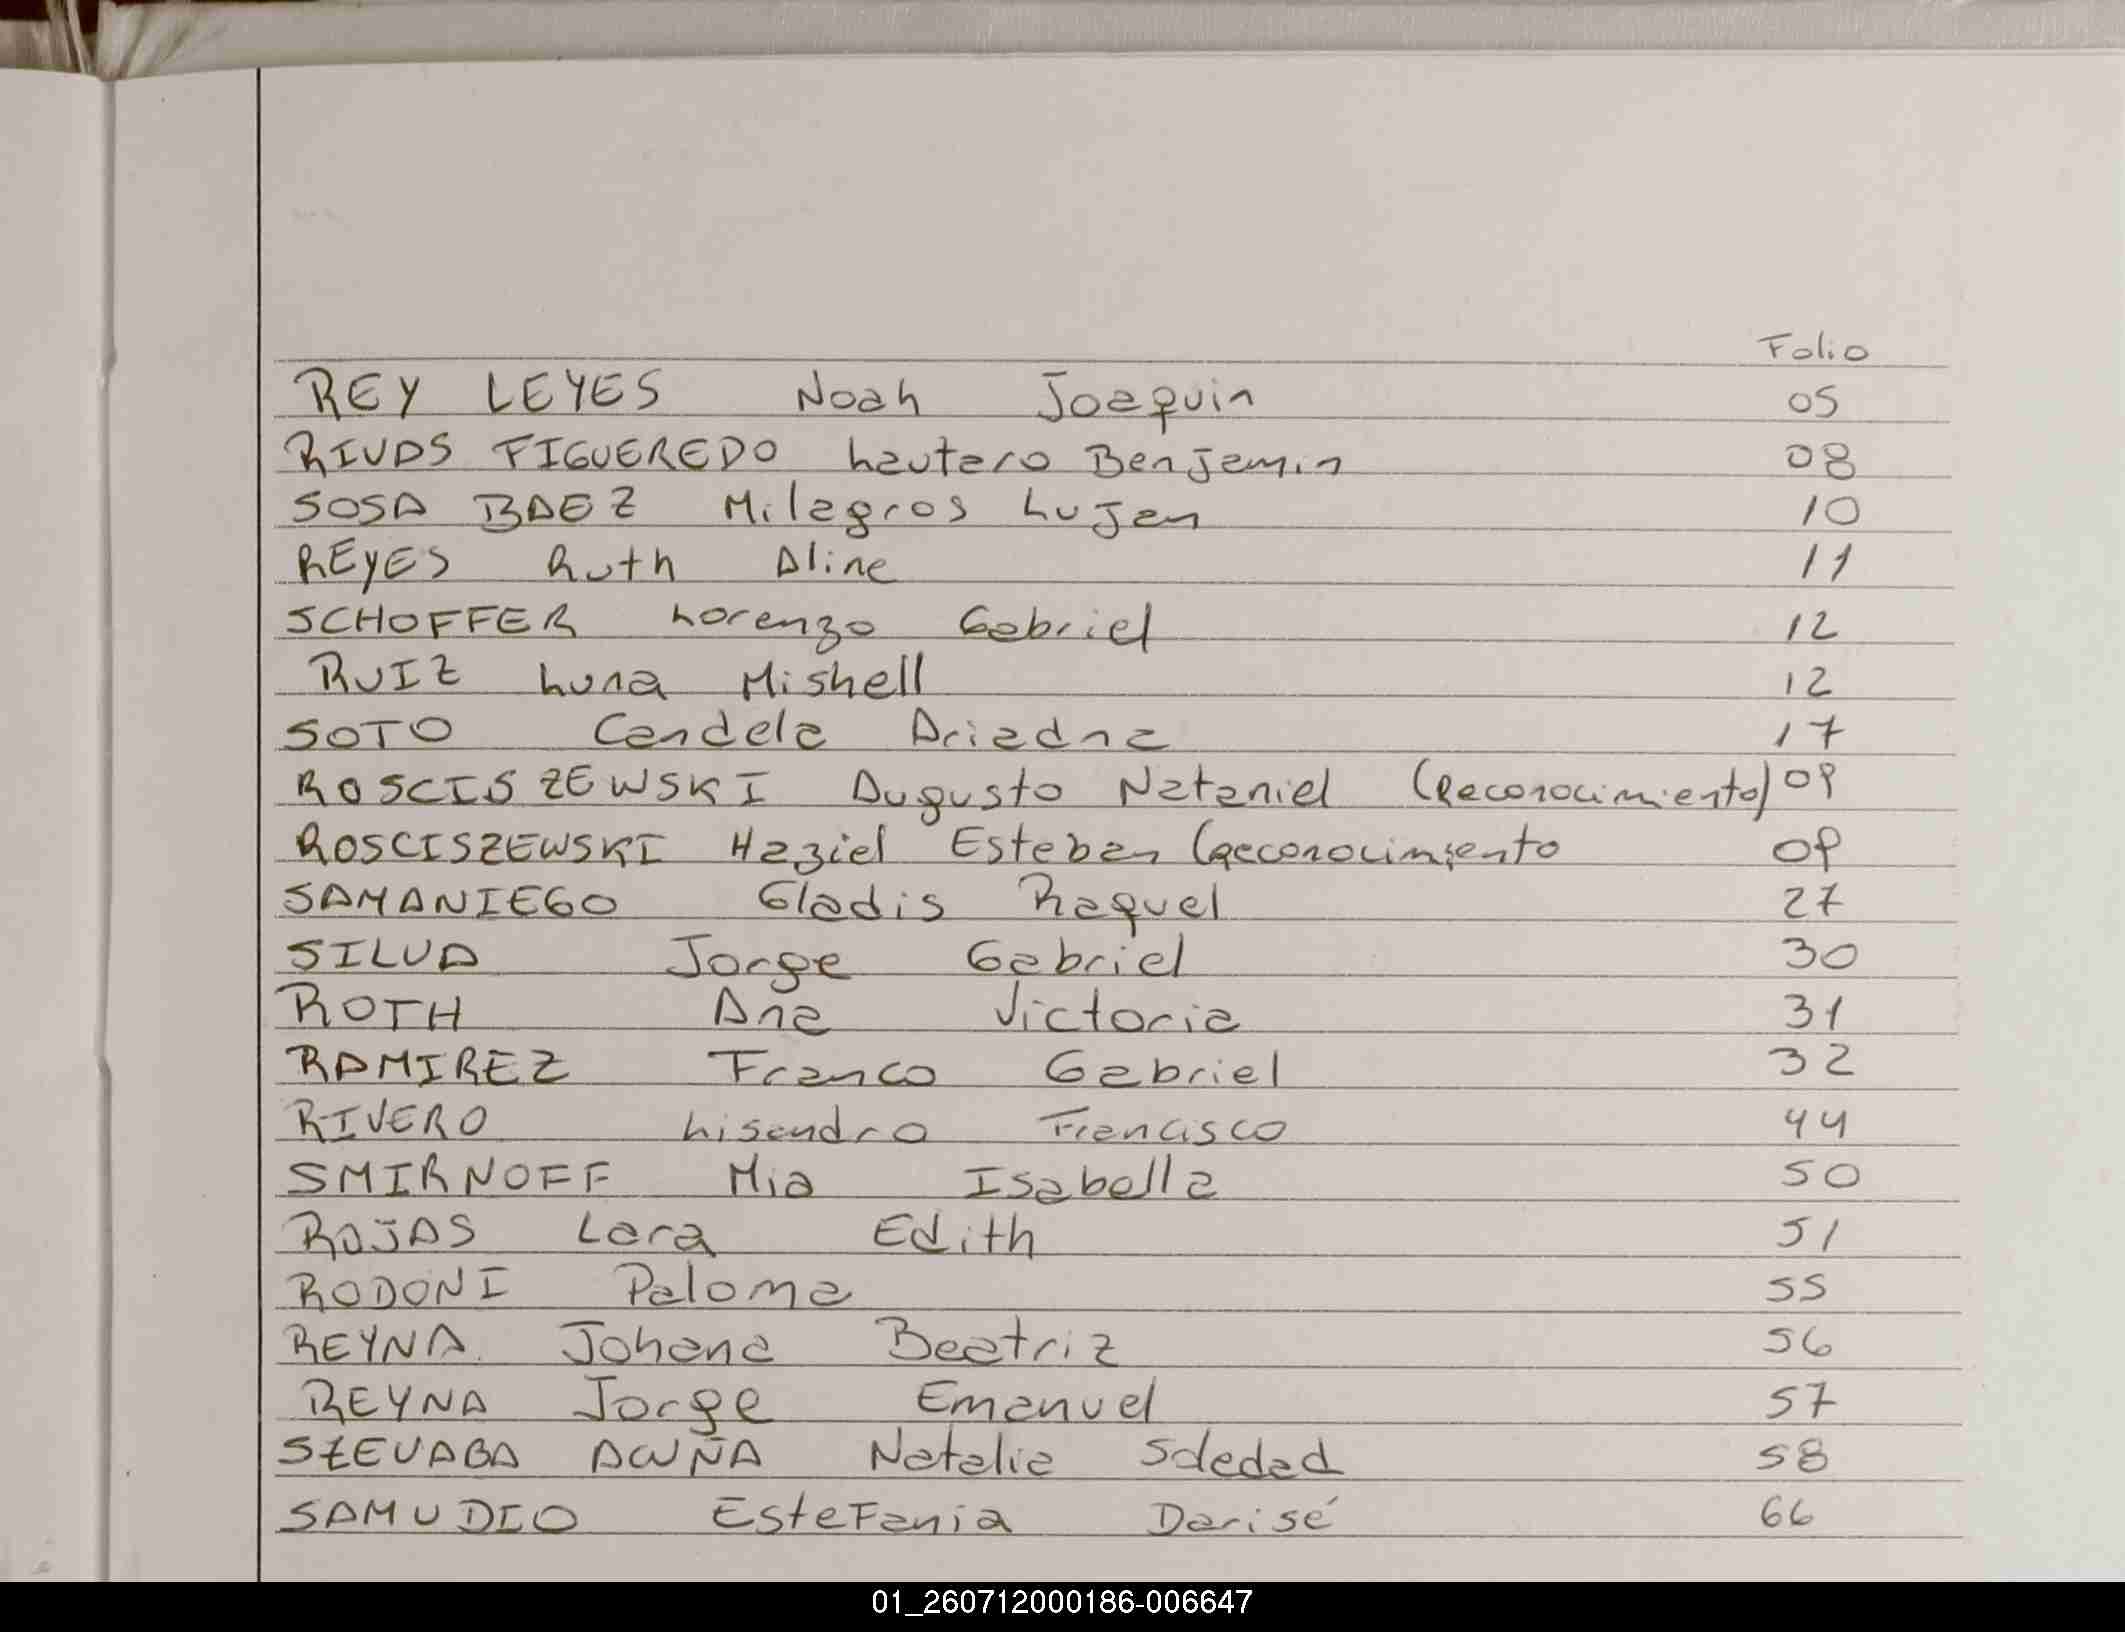 Folio
REY LEYES Noah Joaquin 05
RIVAS FIGUEREDO Lautaro Benjamin 08
SOSA BAEZ Milagros Lujan 10
REYES Ruth Aline 11
SCHOFFER Lorenzo Gabriel 12
RUIZ Luna Mishell 12
SOTO Candela Ariadna 17
ROSCISZEWSKI Augusto Nataniel (Reconocimiento) 09
ROSCISZEWSKI Haziel Esteban (Reconocimiento 09
SAMANIEGO Gladis Raquel 27
SILVA Jorge Gabriel 30
ROTH Ana Victoria 31
RAMIREZ Franco Gabriel 32
RIVERO Lisandro Francisco 44
SMIRNOFF Mia Isabella 50
ROJAS Lara Edith 51
RODONI Paloma 55
REYNA Johana Beatriz 56
REYNA Jorge Emanuel 57
SZEVAGA ACUÑA Natalia Soledad 58
SAMUDIO Estefania Darisé 66
01_260712000186-006647